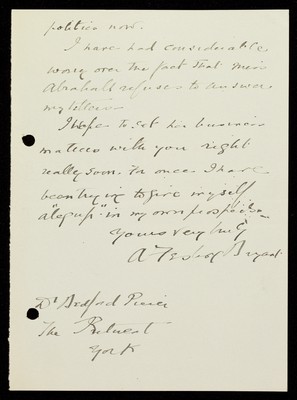 politics now.
I have had considerable
worry over the fact that Miss
refuses to answer
my letters.
I hope to get her business
matters with you right
really soon. For once I have
been trying to give myself
a "leg up" in my own prospects
Yours very truly
A Bryant
Dr Bedford Pierce
The Retreat
York